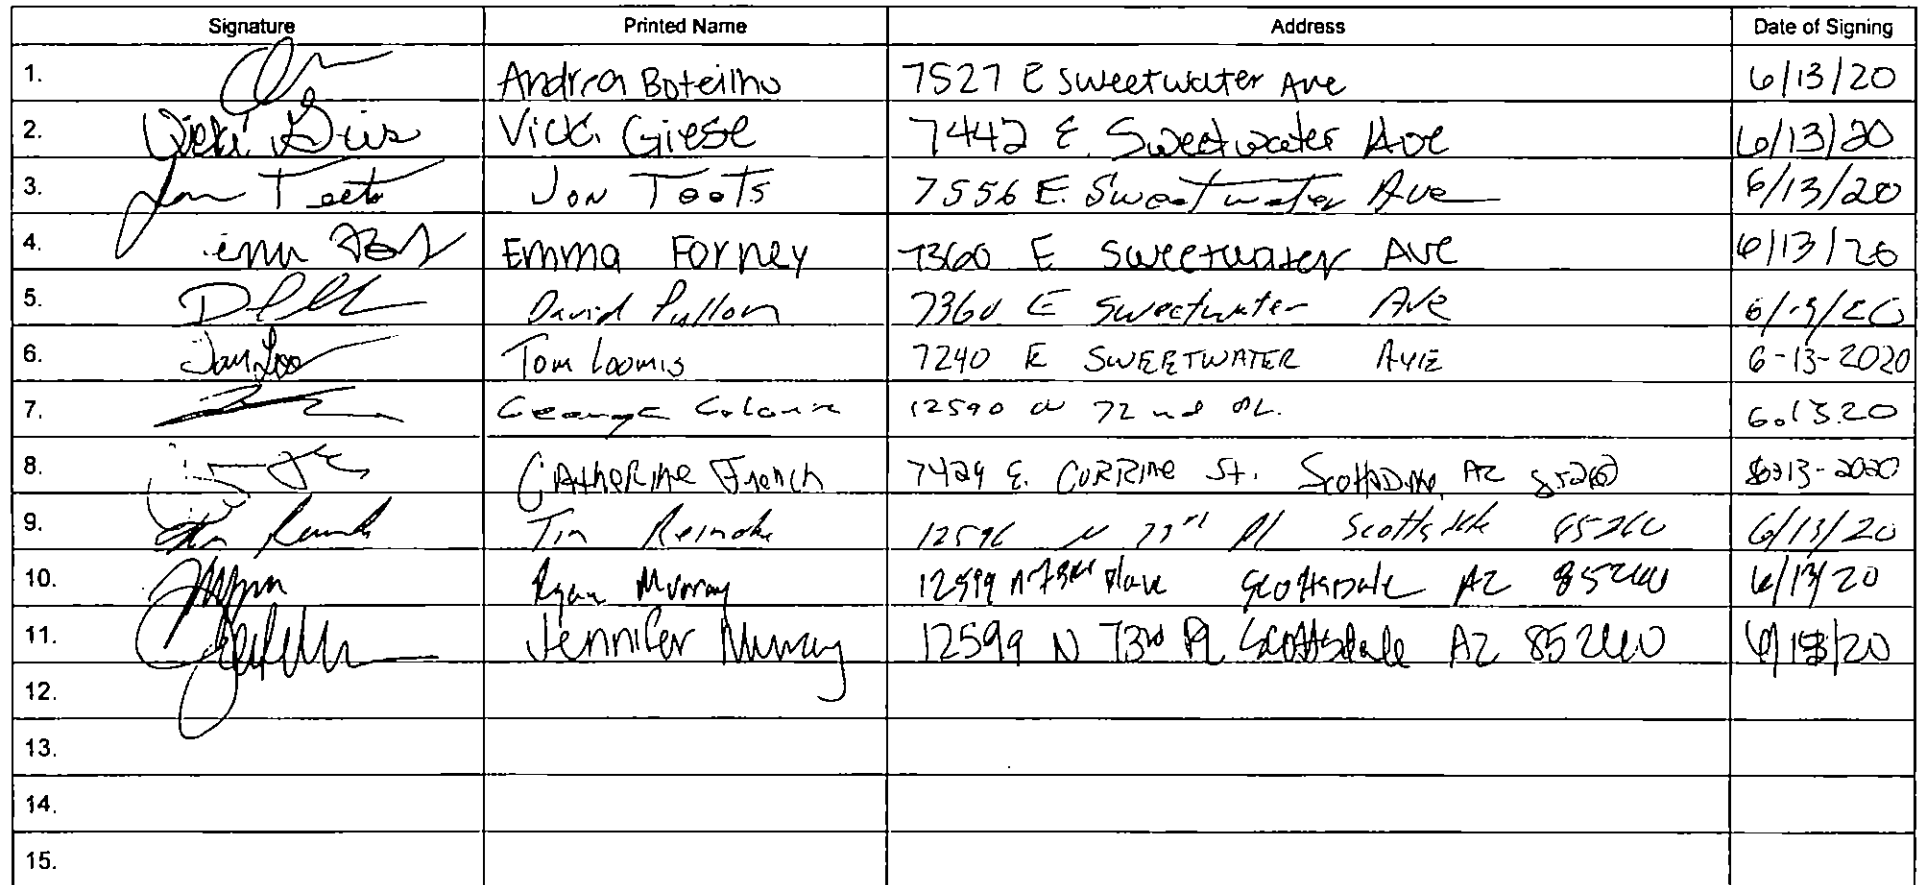 Signature Printed Name Address Date of Signing
1. Andrea Boteilho 7527 E Sweetwater Ave 6/13/20
2. Vicki Giese 7442 E. Sweetwater Ave 6/13/20
3. Jon Teets Jon Teets 7556 E. Sweetwater Ave 6/13/20
4. Emma Forney 7360 E Sweetwater Ave 6/13/20
5. David 7360 E Sweetwater Ave
6. Tom Loomis 7240 E SWEETWATER AVE 6-13-2020
7. George 12590 N 72nd PL. 6.13.20
8. Catherine French 7429 E. CORRINE St. Scottsdale, AZ 85260 13-2020
9. Tim 12596 N 73rd Pl Scottsdale 85260 6/13/20
10. Ryan Murray 12599 N 73rd Place Scottsdale AZ 85260 6/13/20
11. Jennifer Murray 12599 N 73rd Pl Scottsdale AZ 85260 6/13/20
12.
13.
14.
15.